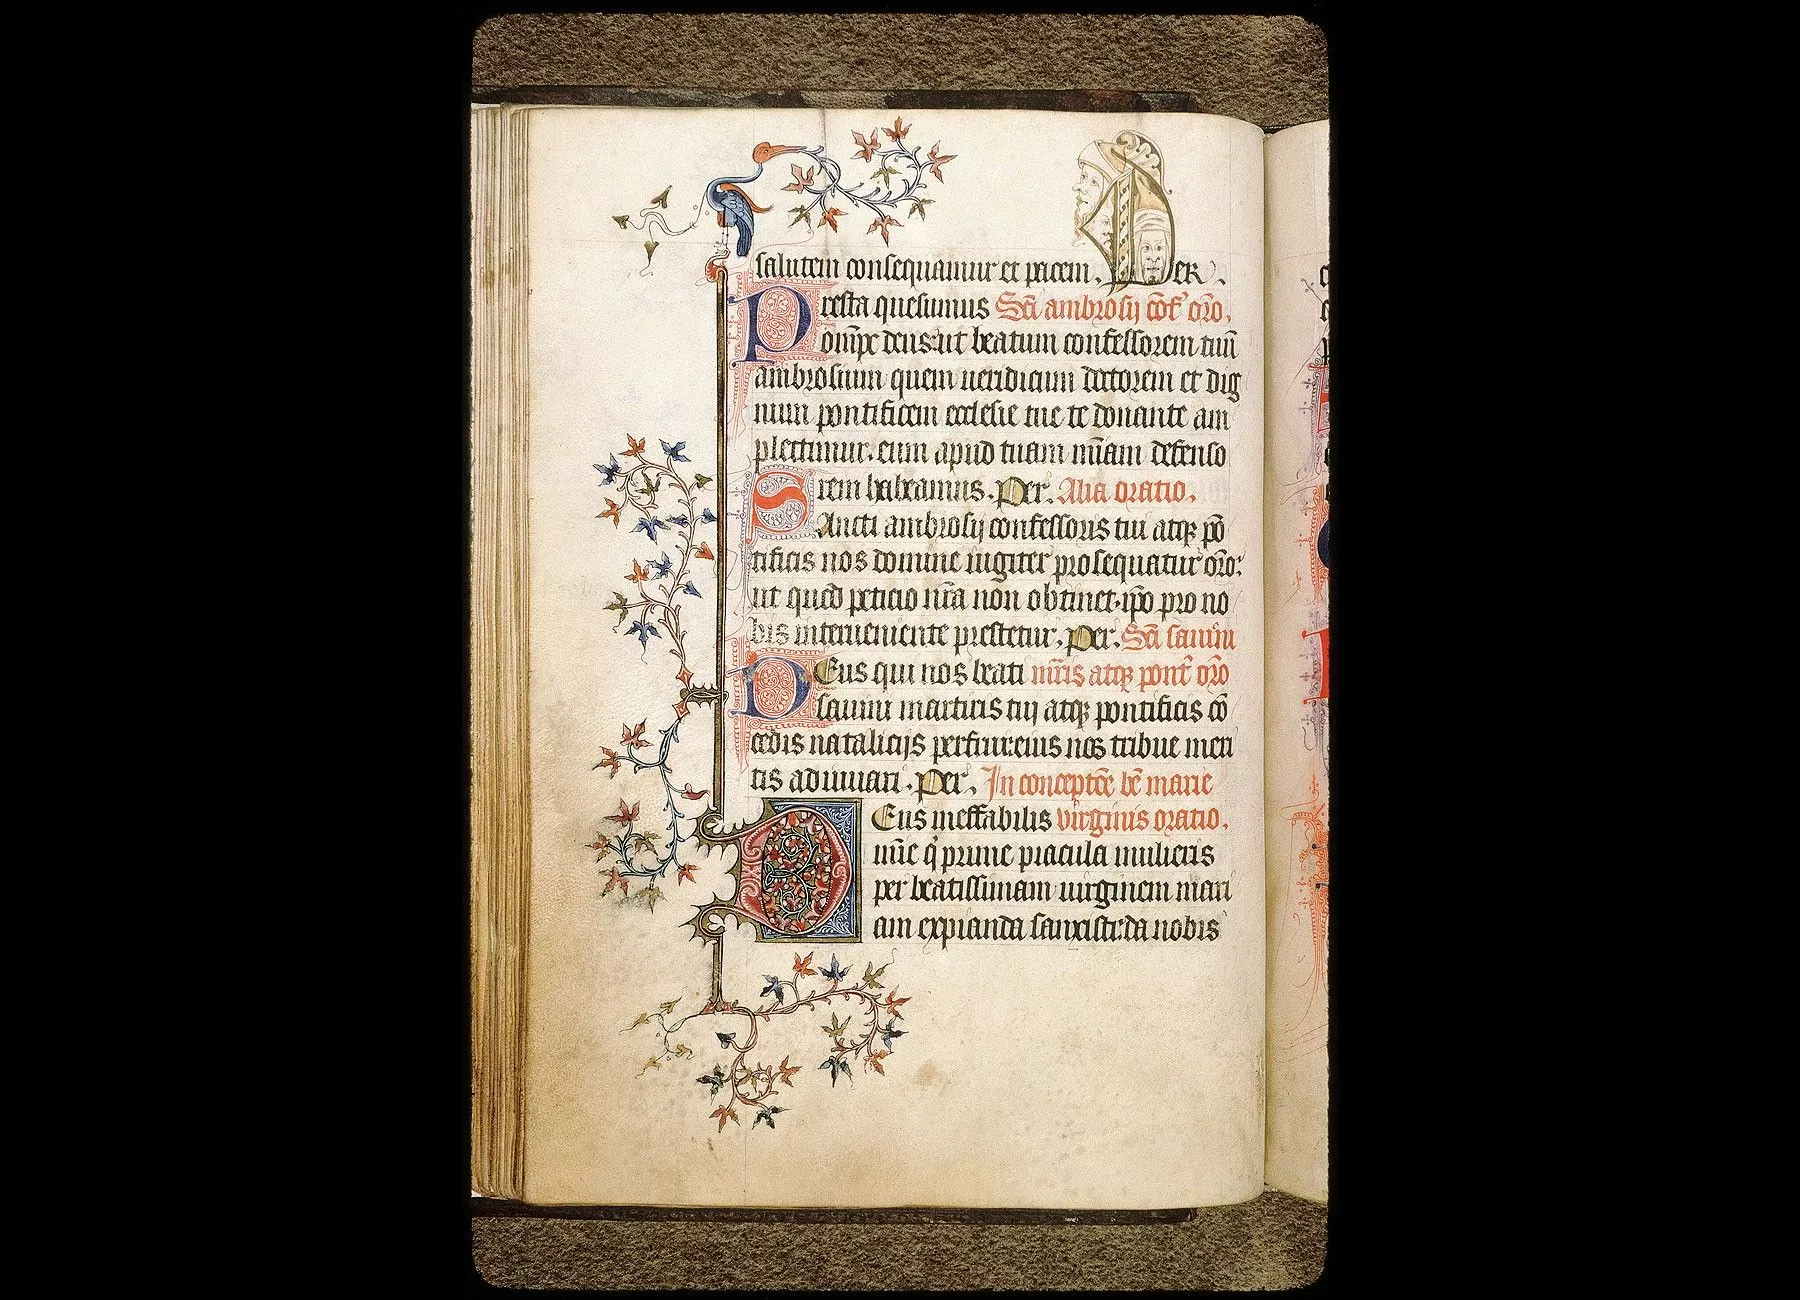 salutem consequamur et pacem. Per.
Presta quesumus Sci ambrosij cōf' oro.
omīpc deus: ut beatum confessorem tuū
ambrosium quem ueridicum doctorem et dig
num pontificem ecclesie tue te donante am
plectimur. eum apud tuam mīam defenso
rem habeamus. Per. Alia oratio.
Sancti ambrosij confessoris tui atqꝫ pō
tificis nos domine iugiter prosequatur oro:
ut quod peticio nra non obtinet. ipo pro no
bis interueniente prestetur. Per. Sci sauini
Deus qui nos beati mris atqꝫ pont' oro
sauini martiris tui atqꝫ pontificis cō
cedis natalicijs perfrui: eius nos tribue meri
tis adiuuari. Per. In conceptōe be marie
Deus ineffabilis uirginis oratio.
mīe q' prime piacula mulieris
per beatissimam uirginem mari
am expianda sanxisti: da nobis